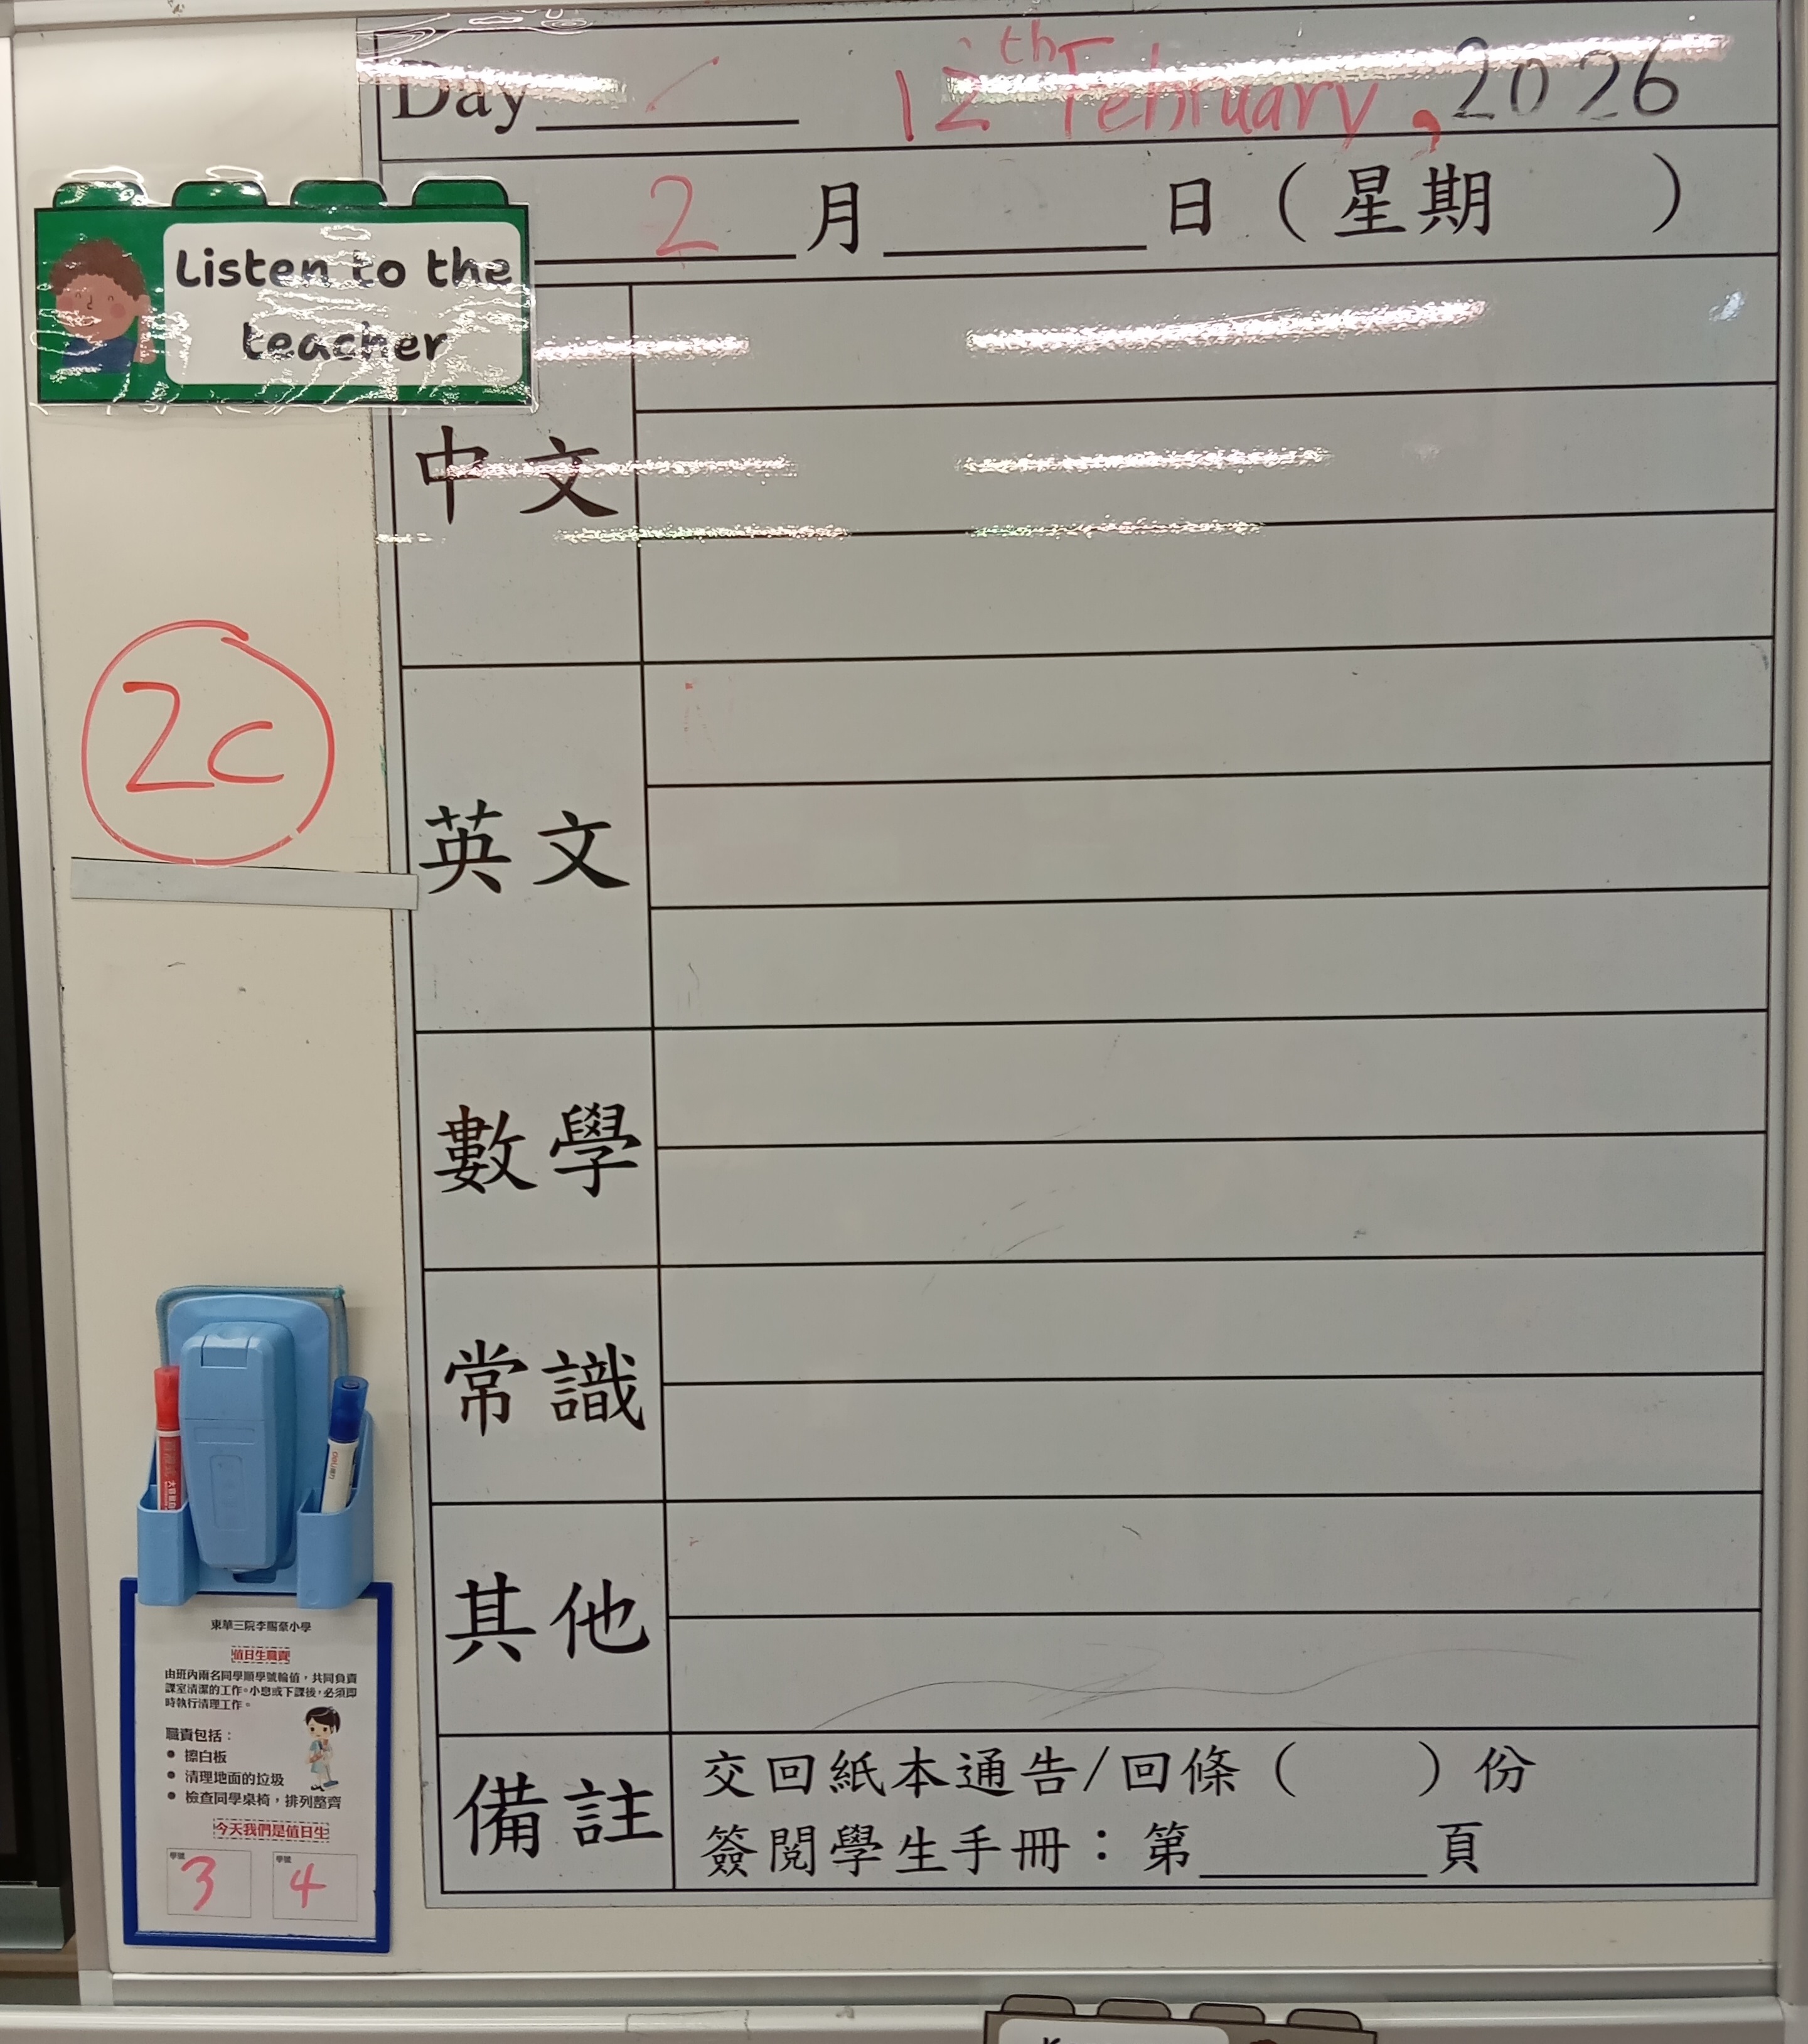 Day 12th February, 2026
2 月 日（星期 ）
Listen to the
teacher
中文
2C
英文
數學
常識
其他
備註
交回紙本通告/回條（ ）份
簽閱學生手冊：第 頁
東華三院李賜豪小學
值日生職責
由班內兩名同學順學號輪值，共同負責
課室清潔的工作。小息或下課後，必須即
時執行清理工作。
職責包括：
● 擦白板
● 清理地面的垃圾
● 檢查同學桌椅，排列整齊
今天我們是值日生
學號 學號
3 4